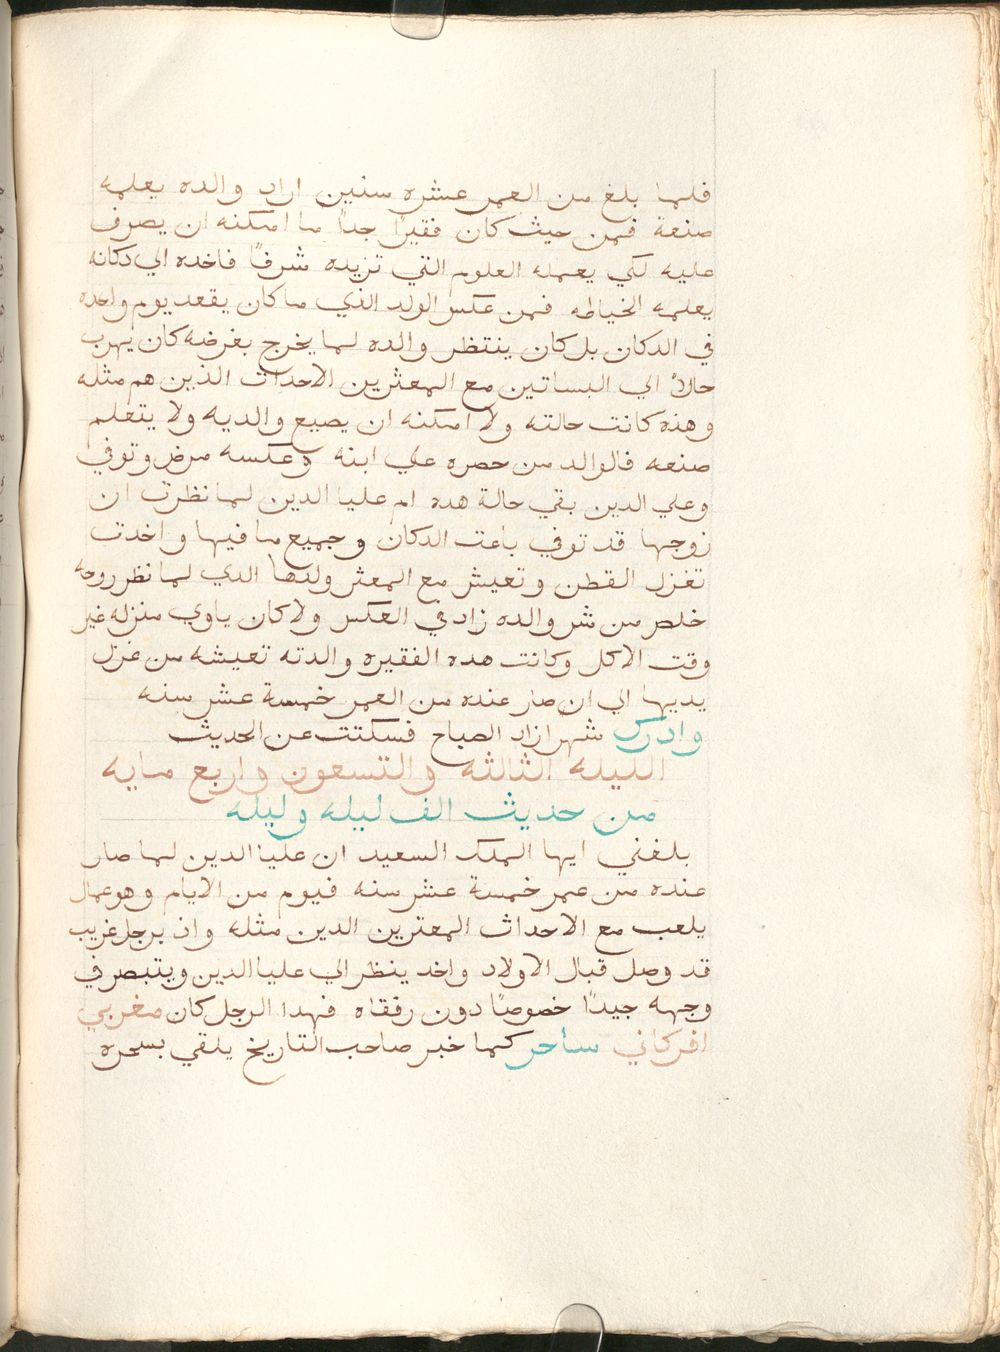 فلما بلغ من العمر عشره سنين اراد والده يعلمه
صنعة فمن حيث كان فقيرًا جدًا ما امكنه ان يصرف
عليه لكي يعمله العلوم التي تزيده شرفًا فاخده الي دكانه
يعلمه الخياطه فمن عكس الولد الذي ما كان يقعد يوم واحده
في الدكان بل كان ينتظر والده لما يخرج بغرضه كان يهرب
حالاً الي البساتين مع المعثرين الاحداث الذين هم مثله
وهذه كانت حالته ولا امكنه ان يصيع والديه ولا يتعلم
صنعه فالوالد من حصره علي ابنه وعكسه مرض وتوفي
وعلي الدين بقي حالة هده ام عليا الدين لما نظرت ان
زوجها قد توفي باعت الدكان وجميع ما فيها واخدت
تغزل القطن وتعيش مع المعثر ولدها الدي لما نظر روحه
خلص من شر والده زاد في العكس ولا كان ياوي منزله غير
وقت الاكل وكانت هده الفقيره والدته تعيشه من غزل
يديها الي ان صار عنده من العمر خمسة عشر سنه
وادرك شهرازاد الصباح فسكتت عن الحديث
الليله الثالثه والتسعون واربع مايه
من حديث الف ليله وليله
بلغني ايها الملك السعيد ان عليا الدين لما صار
عنده من عمر خمسة عشر سنه فيوم من الايام وهو عمال
يلعب مع الاحداث المعترين الدين مثله وان برجل غريب
قد وصل قبال الاولاد واخد ينظر الي عليا الدين ويتبصر في
وجهه جيدًا خصوصًا دون رفقاه فهدا الرجل كان مغربي
افركاني ساحر كما خبر صاحب التاريخ يلقي بسحره